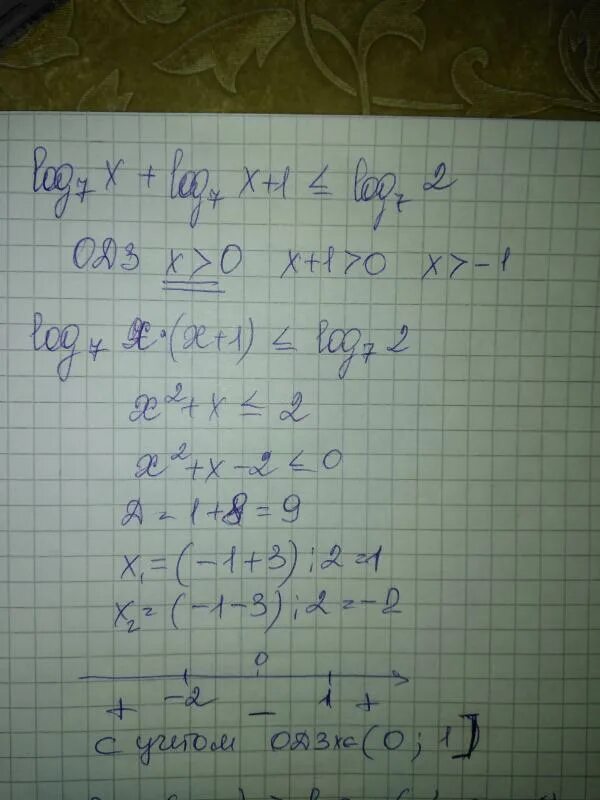 log₇ x + log₇ x+1 ≤ log₇ 2
ОДЗ x > 0 x+1>0 x > -1
log₇ x·(x+1) ≤ log₇ 2
x² + x ≤ 2
x² + x - 2 ≤ 0
Д = 1+8 = 9
x₁ = (-1+3) : 2 = 1
x₂ = (-1-3) : 2 = -2
0
+ -2 - 1 +
с учетом ОДЗ x∈(0; 1]